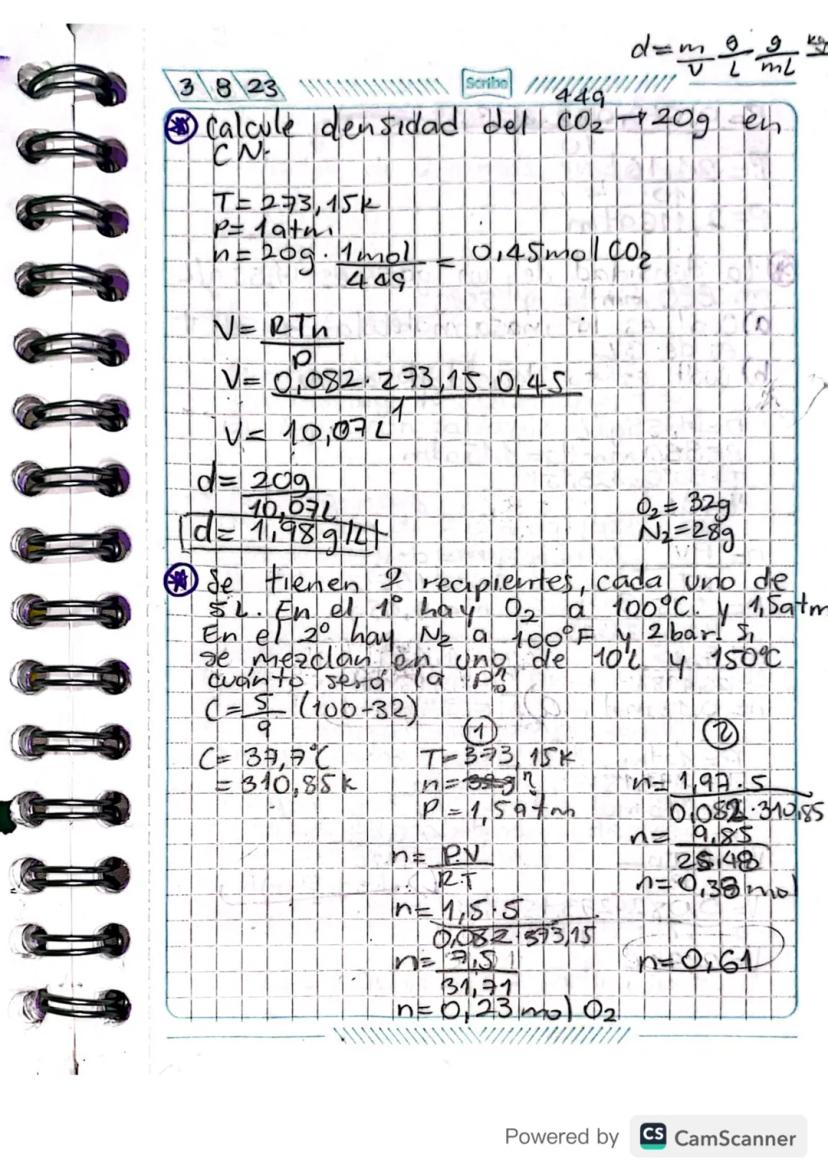 d=m/v g/L g/mL kg
3 8 23
Scribe
44g
Calcule densidad del CO₂ → 20g en
CN.
T=273,15K
P=1atm
n=20g · 1mol/44g = 0,45mol CO₂
V=RTn/P
V=0,082·273,15·0,45/1
V= 10,07L
d=20g/10,07L
d= 1,98 g/L
O₂= 32g
N₂=28g
Se tienen 2 recipientes, cada uno de
5L. En el 1° hay O₂ a 100°C. y 1,5atm
En el 2° hay N₂ a 100°F y 2 bar. Si
se mezclan en uno de 10L y 150°C
cuánto será la P?
C=5/9 (100-32)
C= 37,7°C
= 310,85K
1
T=373,15K
n= ?
P=1,5atm
n= P.V/R.T
n=1,5·5/0,082·373,15
n=7,5/31,71
n=0,23 mol O₂
2
n=1,97·5/0,082·310,85
n=9,85/25,48
n=0,38mol
n=0,61
Powered by CS CamScanner